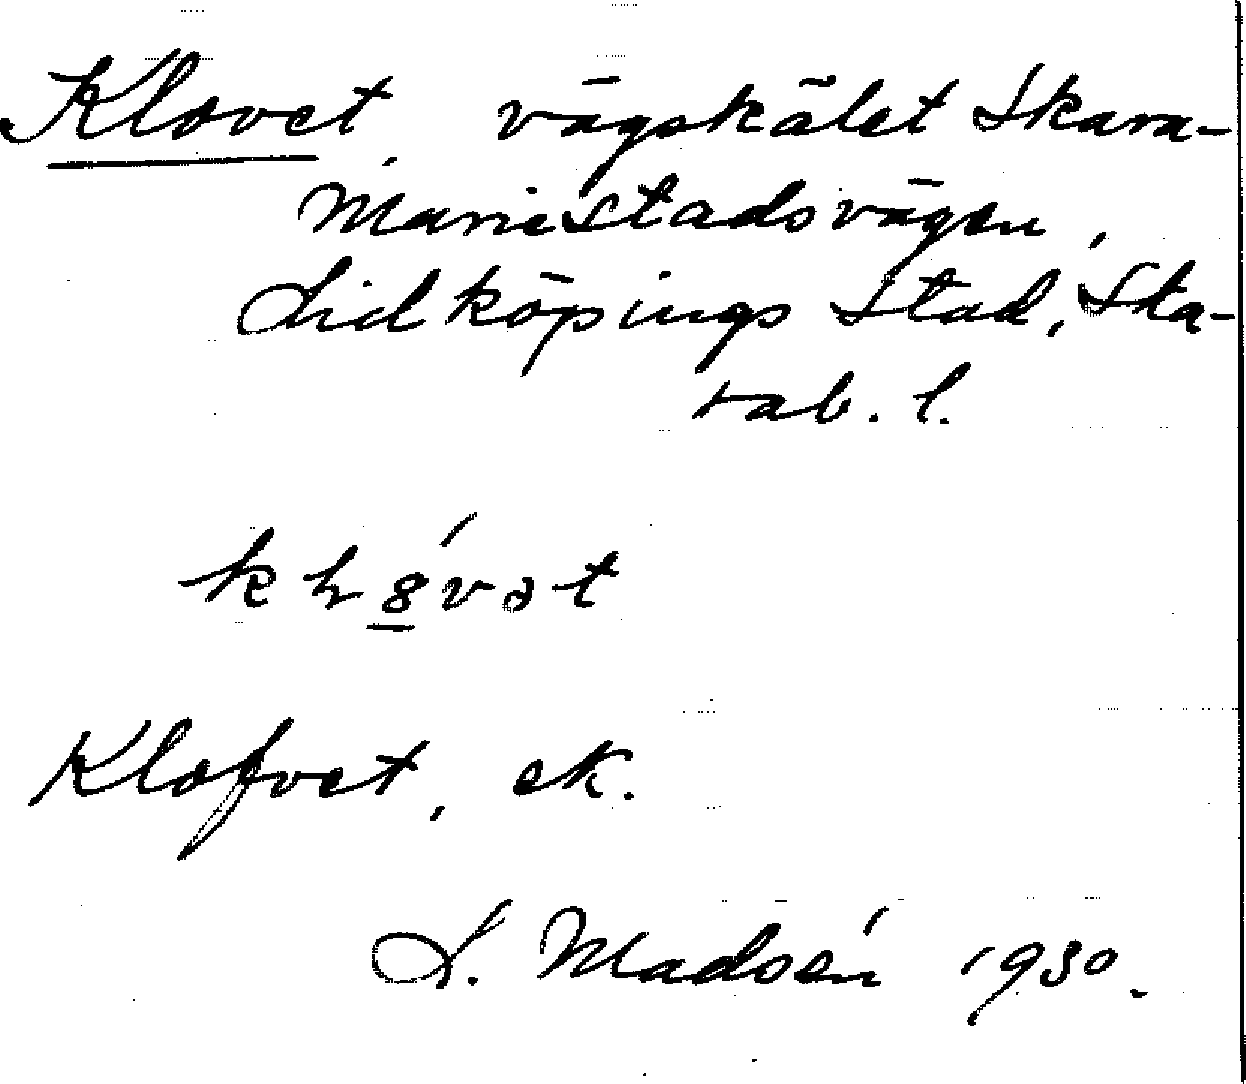 Klovet, vägskälet Skara-
Mariestadsvägen,
Lidköpings Stad, Ska-
rab. l.
Klofvet, ek.
S. Madsén 1930.